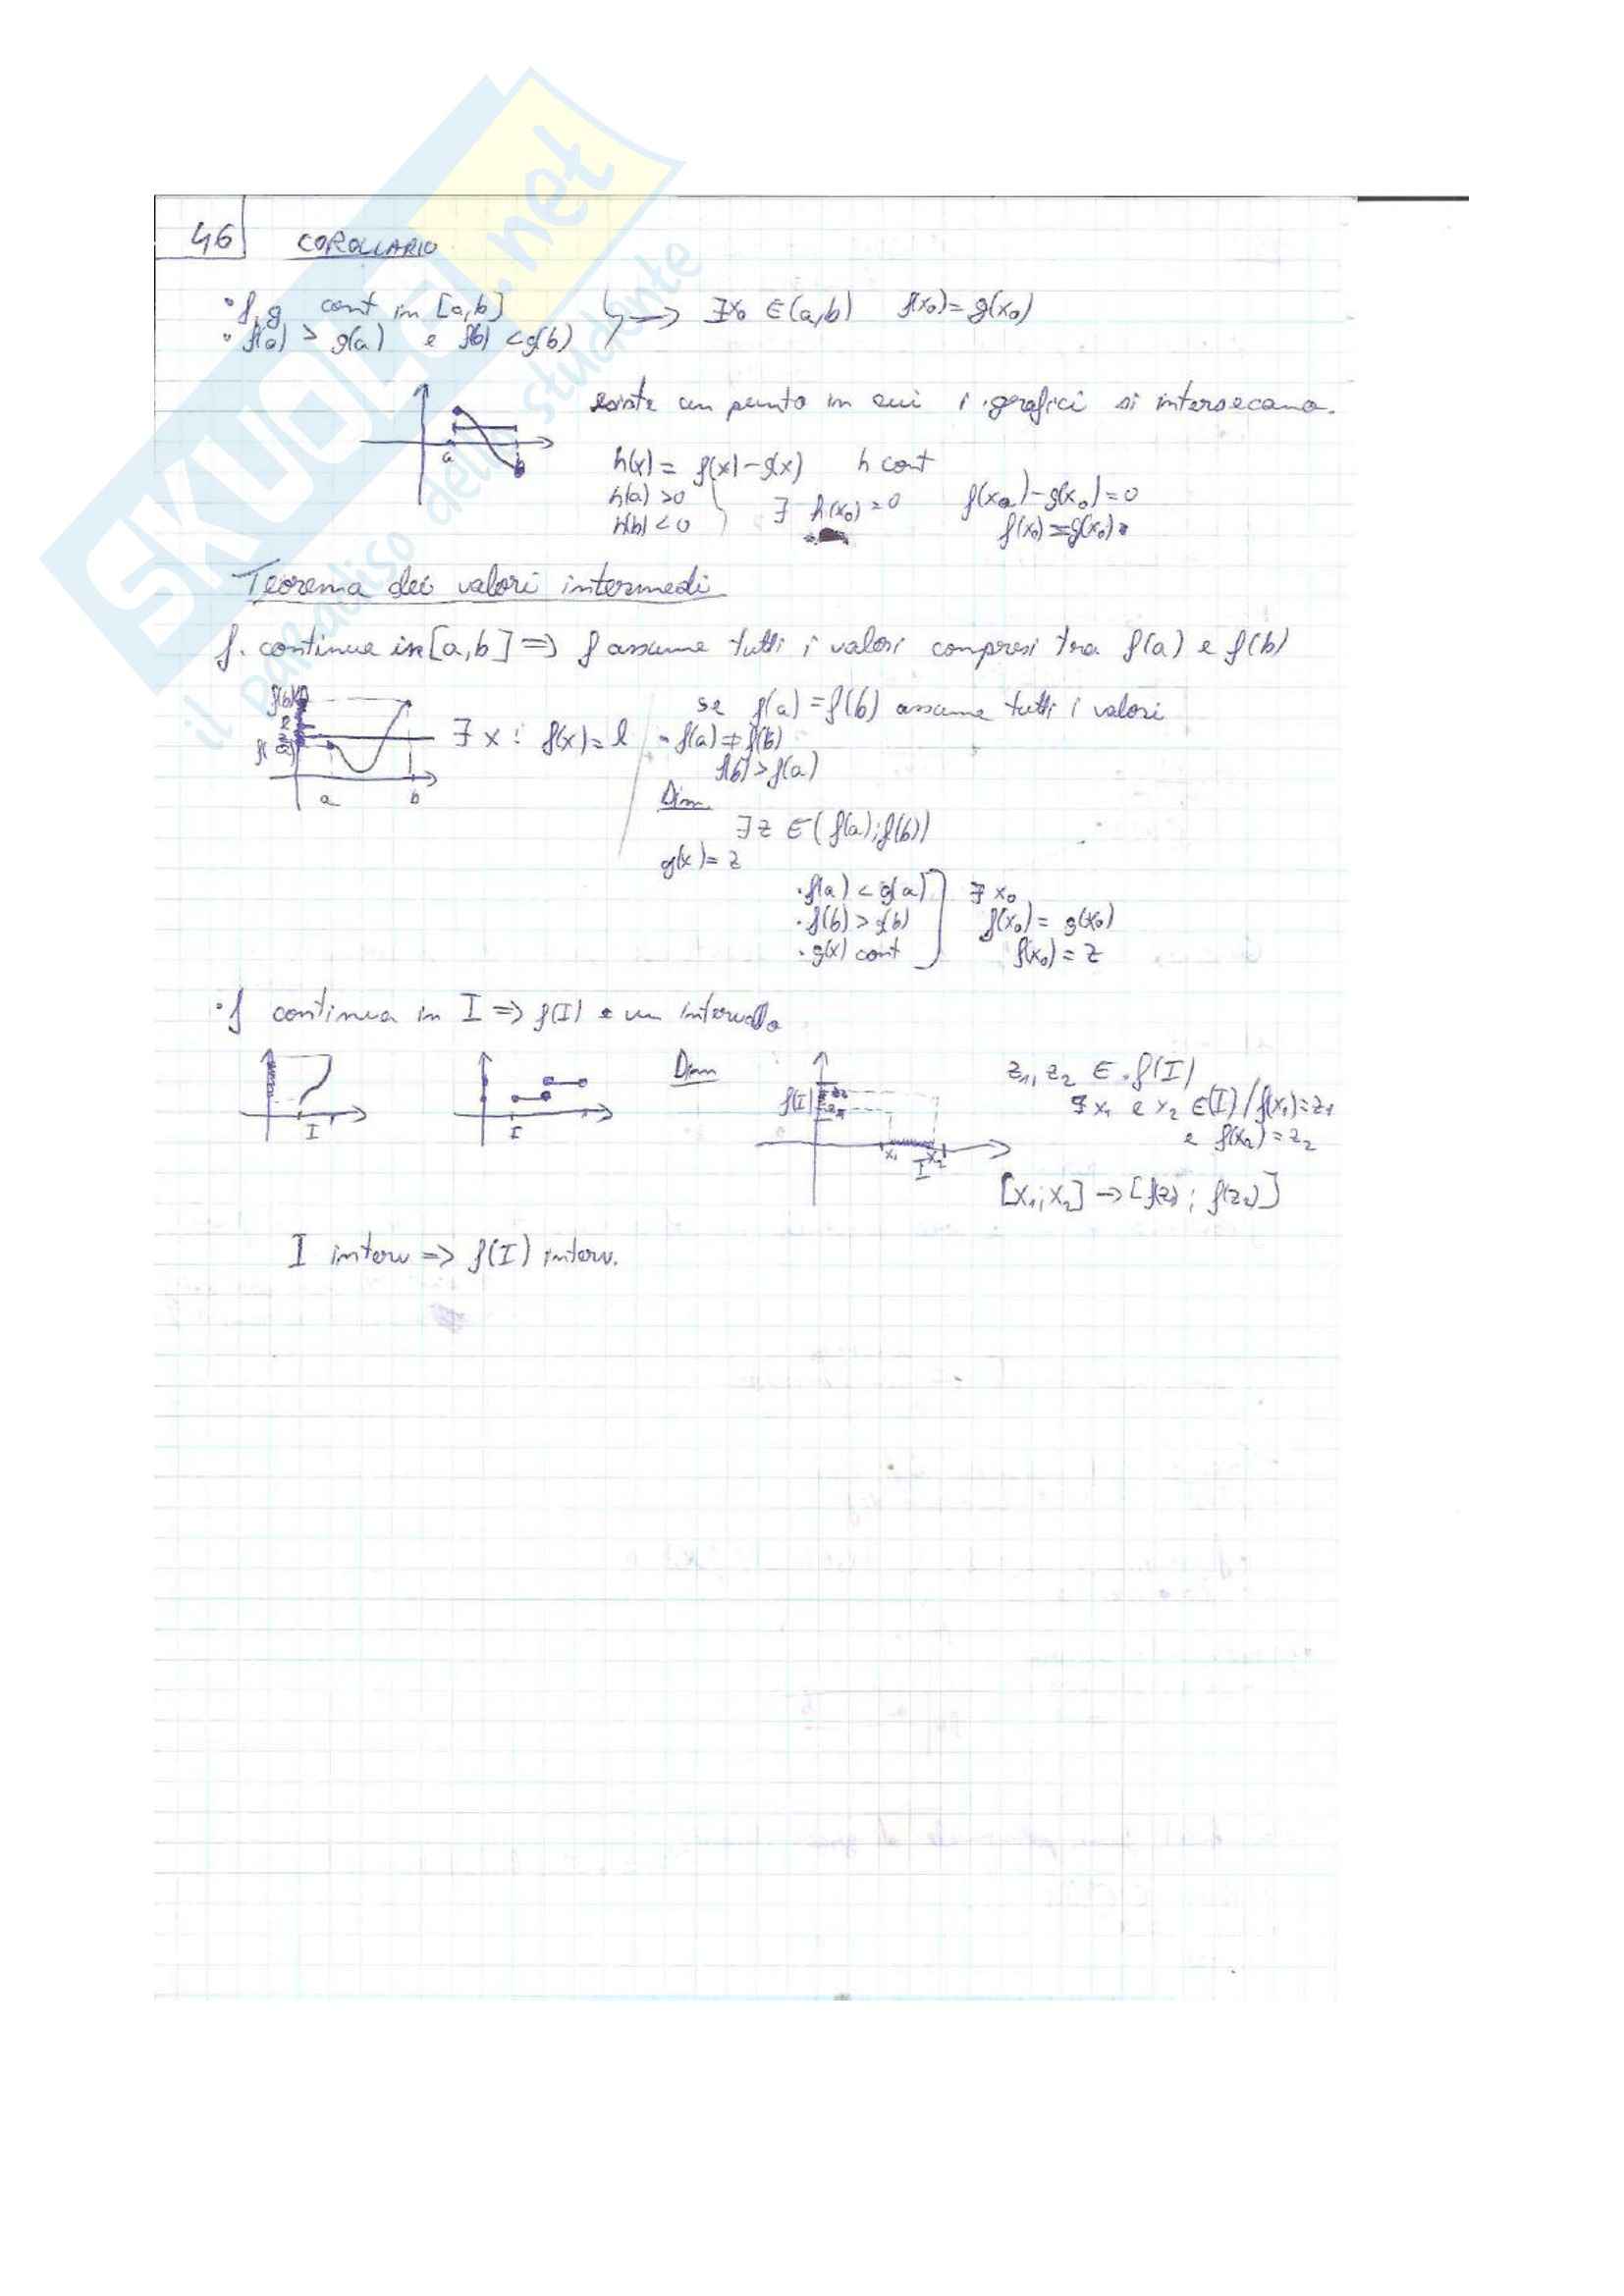 SKUOLA.net
il paradiso dello studente
46 COROLLARIO
• f, g cont in [a,b]
• f(a) > g(a) e f(b) < g(b) → ∃x₀ ∈ (a,b) f(x₀) = g(x₀)
esiste un punto in cui i grafici si intersecano.
a b
h(x) = f(x) - g(x) h cont
h(a) > 0
h(b) < 0 ∃ h(x₀) = 0 f(x₀) - g(x₀) = 0
f(x₀) = g(x₀)
Teorema dei valori intermedi
f. continua in [a,b] ⇒ f assume tutti i valori compresi tra f(a) e f(b)
f(b)
a b
∃ x : f(x) = l
se f(a) = f(b) assume tutti i valori
• f(a) ≠ f(b)
f(b) > f(a)
Dim
∃ z ∈ (f(a); f(b))
g(x) = z
• f(a) < g(a)
• f(b) > g(b)
• g(x) cont
∃ x₀
f(x₀) = g(x₀)
f(x₀) = z
• f continua in I ⇒ f(I) e un intervallo
I
I
Dim
f(I)
x₁ x₂
I
z₁, z₂ ∈ f(I)
∃ x₁ e x₂ ∈ (I) / f(x₁) = z₁
e f(x₂) = z₂
[x₁; x₂] → [f(z₁); f(z₂)]
I interv ⇒ f(I) interv.